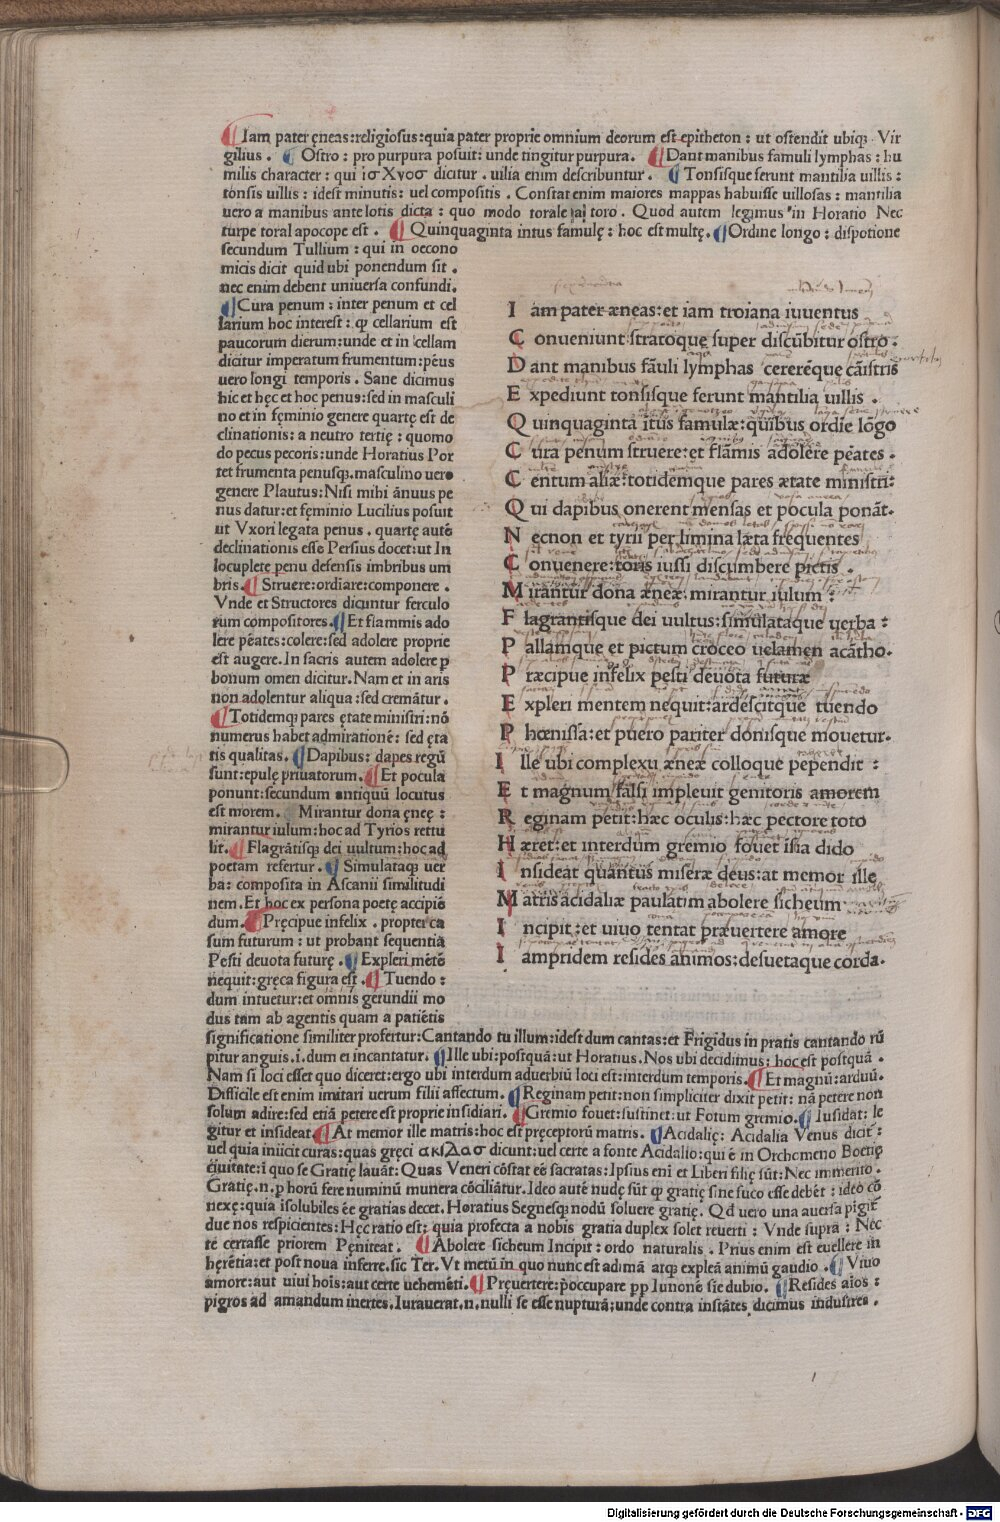 Iam pater ęneas:religiosus:quia pater proprie omnium deorum est epitheton : ut ostendit ubiq; Vir
gilius . Ostro : pro purpura posuit: unde tingitur purpura. Dant manibus famuli lymphas : hu
milis character : qui ισΧνοσ dicitur . uilia enim describuntur. Tonsisque ferunt mantilia uillis :
tonsis uillis : idest minutis: uel compositis . Constat enim maiores mappas habuisse uillosas : mantilia
uero a manibus ante lotis dicta : quo modo torale a toro . Quod autem legimus in Horatio Nec
turpe toral apocope est . Quinquaginta intus famulę : hoc est multę. Ordine longo : dispotione
secundum Tullium : qui in oecono
micis dicit quid ubi ponendum sit .
nec enim debent uniuersa confundi.
Cura penum : inter penum et cel
larium hoc interest : ꝙ cellarium est
paucorum dierum: unde et in cellam
dicitur imperatum frumentum: pēus
uero longi temporis . Sane dicimus
hic et hęc et hoc penus: sed in masculi
no et in fęminio genere quartę est de
clinationis: a neutro tertię : quomo
do pecus pecoris: unde Horatius Por
tet frumenta penusq;. masculino uero
genere Plautus: Nisi mihi ānuus pe
nus datur: et fęminio Lucilius posuit
ut Vxori legata penus . quartę autē
declinationis esse Persius docet: ut In
locuplete penu defensis imbribus um
bris. Struere: ordiare: componere .
Vnde et Structores dicuntur ferculo
rum compositores. Et flammis ado
lere pēates: colere: sed adolere proprie
est augere. In sacris autem adolere p
bonum omen dicitur. Nam et in aris
non adolentur aliqua : sed cremātur .
Totidemq; pares ętate ministri: nō
numerus habet admirationē: sed ęta
tis qualitas. Dapibus: dapes regū
sunt: epulę priuatorum. Et pocula
ponunt: secundum antiquū locutus
est morem. Mirantur dona ęneę :
mirantur iulum: hoc ad Tyrios rettu
lit. Flagrātisq; dei uultum: hoc ad
poetam refertur. Simulataq; uer
ba: composita in Ascanii similitudi
nem. Et hoc ex persona poetę accipiē
dum. Pręcipue infelix . propter ca
sum futurum : ut probant sequentia
Pesti deuota futurę . Expleri mētē
nequit: gręca figura est . Tuendo :
dum intuetur: et omnis gerundii mo
dus tam ab agentis quam a patiētis
significatione similiter profertur: Cantando tu illum: idest dum cantas: et Frigidus in pratis cantando rū
pitur anguis. i. dum ei incantatur. Ille ubi: postquā: ut Horatius. Nos ubi decidimus: hoc est postquā .
Nam si loci esset quo diceret: ergo ubi interdum aduerbiū loci est: interdum temporis. Et magnū: arduū.
Difficile est enim imitari uerum filii affectum. Reginam petit: non simpliciter dixit petit: nā petere non
solum adire: sed etiā petere est proprie insidiari. Gremio fouet: sustinet: ut Fotum gremio. Insidat: le
gitur et insideat. At memor ille matris: hoc est pręceptorū matris. Acidalię: Acidalia Venus dicit :
uel quia iniicit curas: quas gręci ακιλασ dicunt: uel certe a fonte Acidalio: qui ē in Orchomeno Boetię
ciuitate: ī quo se Gratię lauāt: Quas Veneri cōstat eē sacratas: Ipsius eni et Liberi filię sūt: Nec immerito .
Gratię. n. p horū fere numinū munera cōciliātur. Ideo autē nudę sūt ꝙ gratię sine fuco esse debēt : ideo cō
nexę: quia īsolubiles eē gratias decet. Horatius Segnesq; nodū soluere gratię. Qđ uero una auersa pigit
due nos respicientes: Hęc ratio est: quia profecta a nobis gratia duplex solet reuerti : Vnde supra : Nec
te certasse priorem Pęniteat . Abolere sicheum Incipit : ordo naturalis . Prius enim est euellere in
hęrētia: et post noua inferre. sic Ter. Vt metū in quo nunc est adimā atq; expleā animū gaudio . Viuo
amore: aut uiui hoīs: aut certe uehemēti. Pręuertere: p̄occupare pp Iunonē sie dubio. Resides aīos :
pigros ad amandum inertes. Iurauerat. n. nulli se esse nupturā; unde contra instātes dicimus industres .
I am pater æneas: et iam troiana iuuentus
C onueniunt: stratoque super discūbitur ostro .
D ant manibus fāuli lymphas cererēque cāistris
E xpediunt tonsisque ferunt mantilia uillis .
Q uinquagintā ītus famulæ: quibus ordīe lōgo
C ura penum struere: et flāmis adolere pēates .
C entum aliæ: totidemque pares ætate ministri:
Q ui dapibus onerent mensas et pocula ponāt.
N ecnon et tyrii per limina læta frequentes
C onuenere: toris iussi discumbere pictis .
M irantur dona æneæ: mirantur iulum :
F lagrantisque dei uultus: simulataque uerba :
P allamque et pictum croceo uelamen acātho.
P ræcipue infelix pesti deuota futuræ
E xpleri mentem nequit: ardescitque tuendo
P hœnissa: et puero pariter donisque mouetur.
I lle ubi complexu æneæ colloque pependit :
E t magnum falsi impleuit genitoris amorem
R eginam petit: hæc oculis: hæc pectore toto
H æret: et interdum gremio fouet īscia dido
I nsideat quantus miseræ deus: at memor ille
M atris acidaliæ paulatim abolere sicheum
I ncipit: et uiuo tentat præuertere amore
I ampridem resides animos: desuetaque corda.
Digitalisierung gefördert durch die Deutsche Forschungsgemeinschaft - DFG